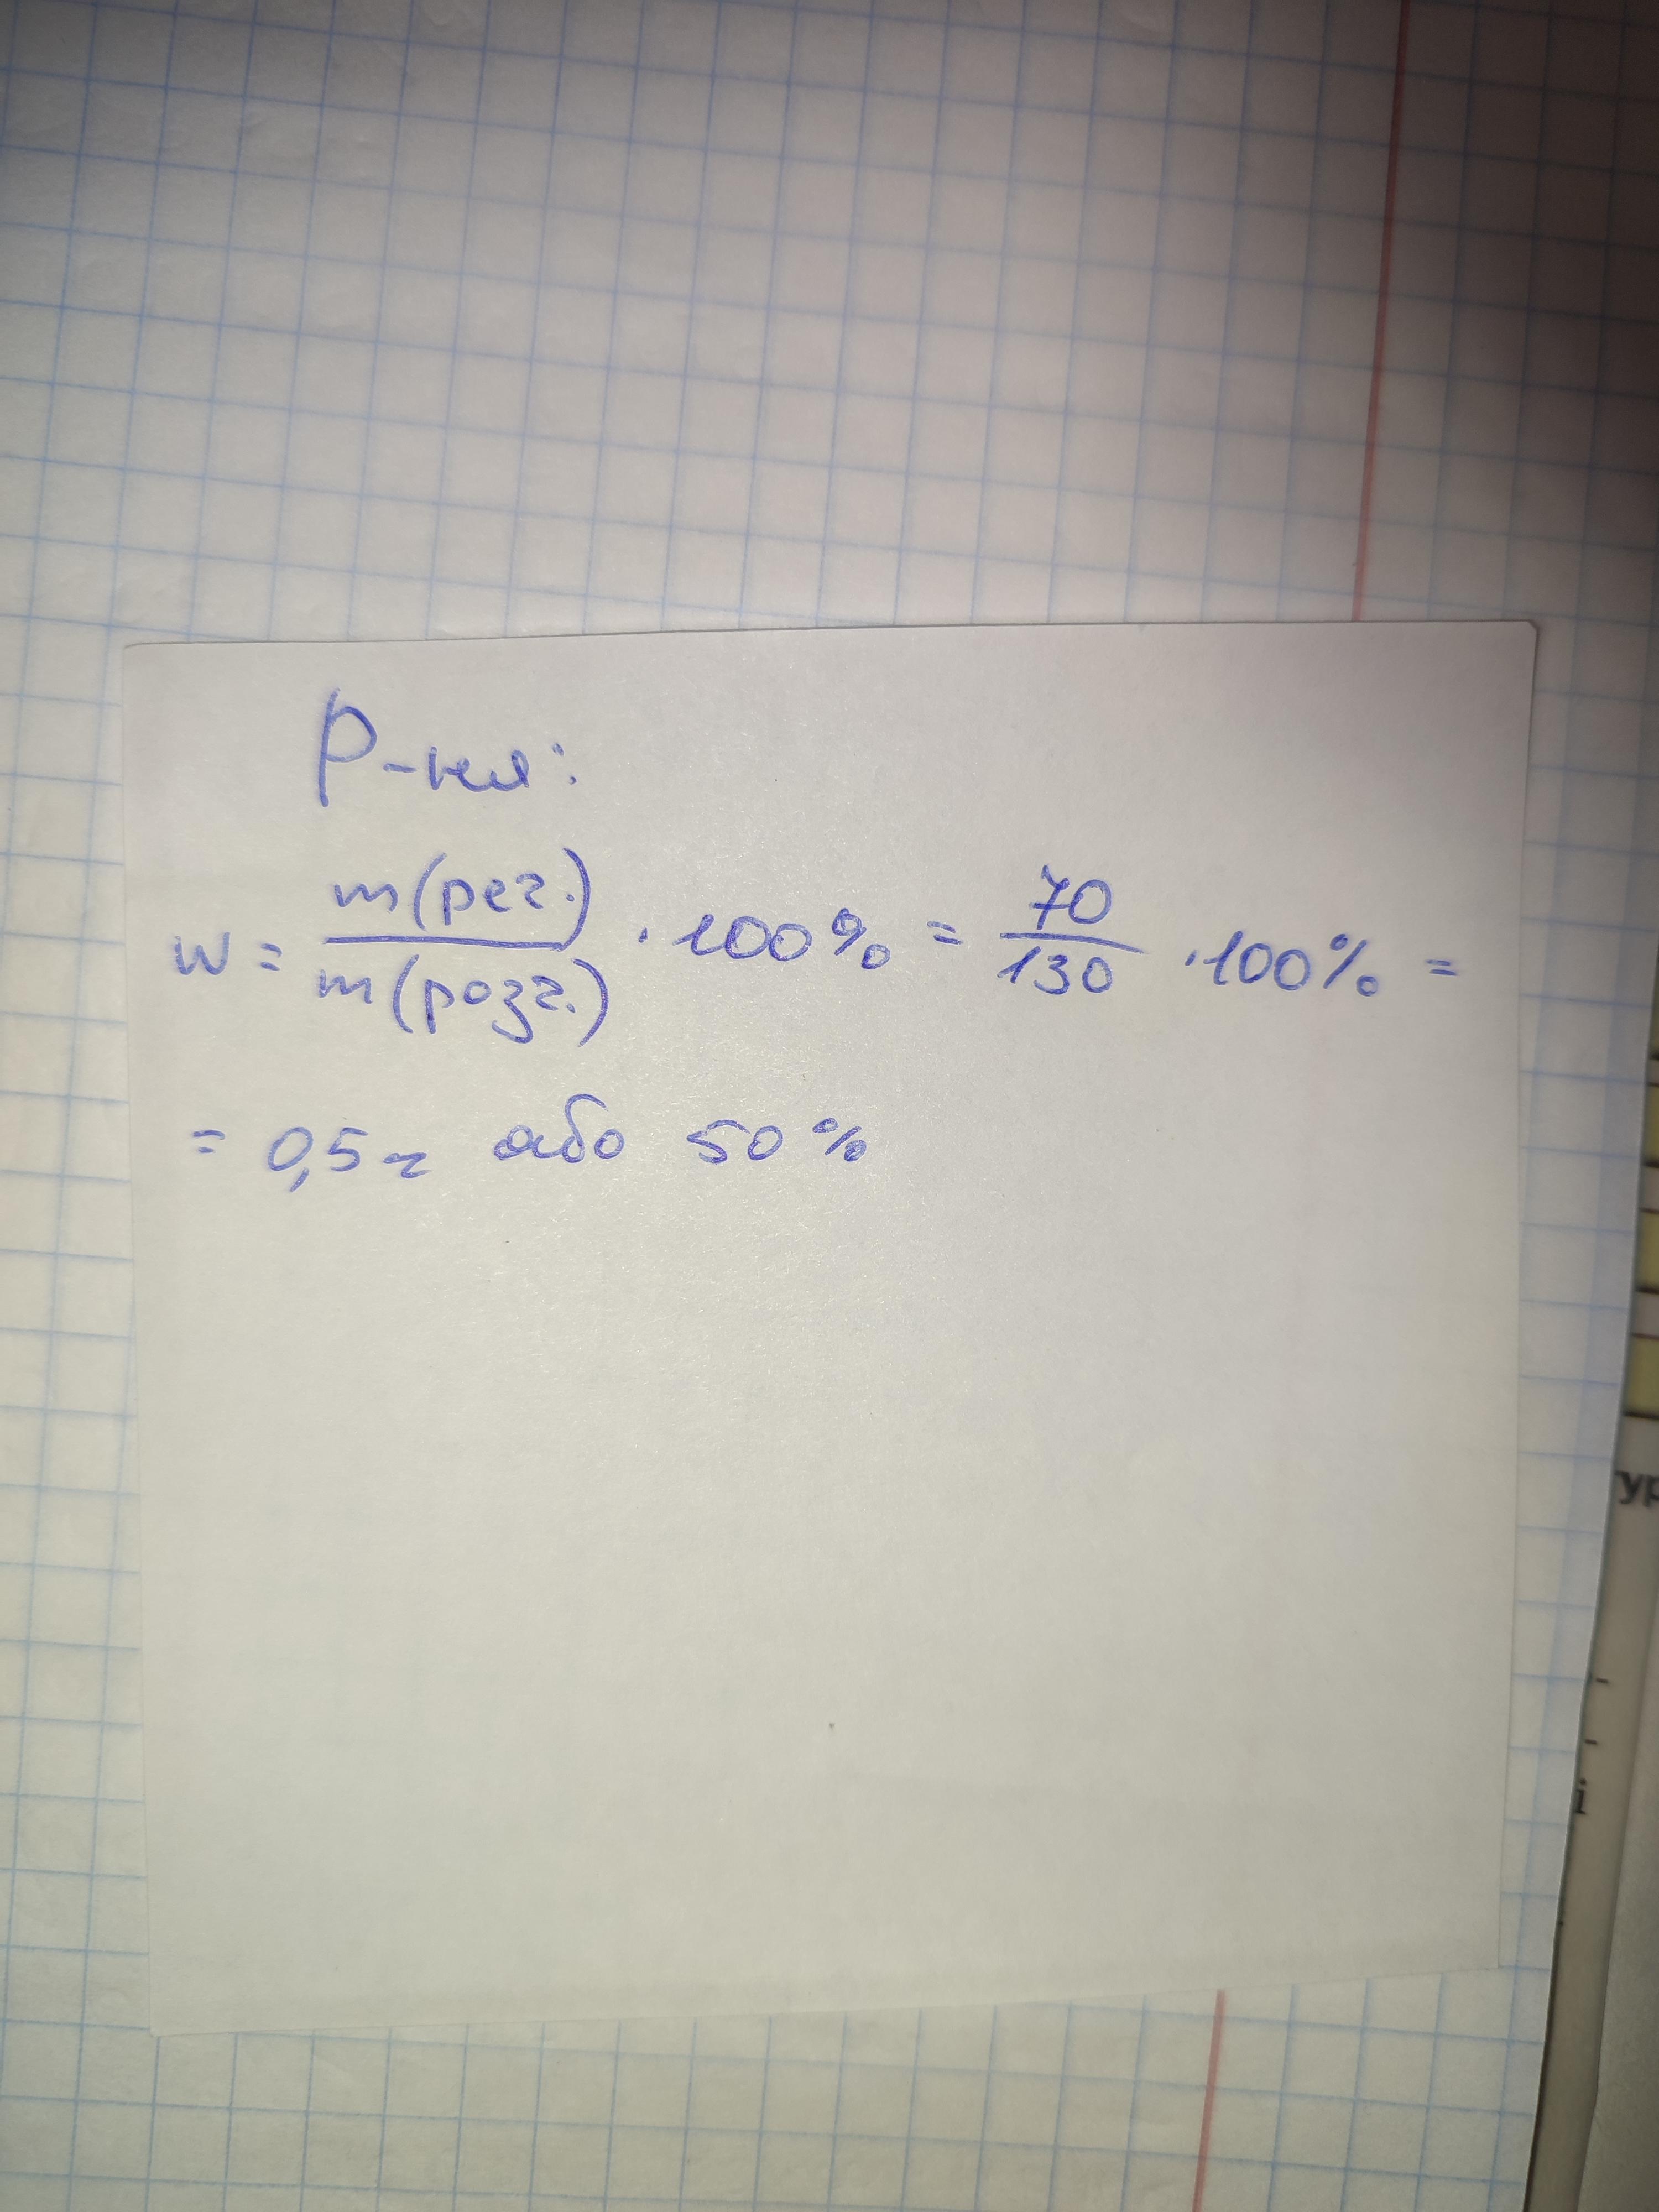 Р-ння:
w = m(реч.) / m(розч.) · 100% = 70 / 130 · 100% =
= 0,5 г або 50%
ур
і